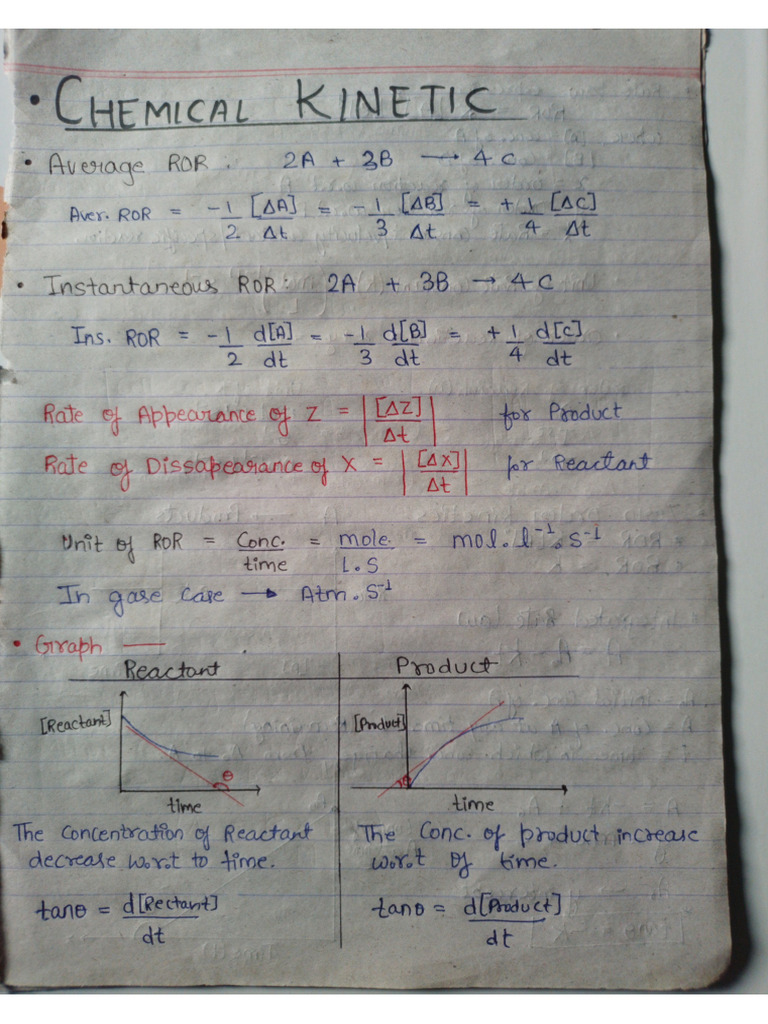 • CHEMICAL KINETIC
• Average ROR : 2A + 3B → 4C
Aver. ROR = -1/2 [ΔA]/Δt = -1/3 [ΔB]/Δt = +1/4 [ΔC]/Δt
• Instantaneous ROR: 2A + 3B → 4C
Ins. ROR = -1/2 d[A]/dt = -1/3 d[B]/dt = +1/4 d[C]/dt
Rate of Appearance of Z = |[ΔZ]/Δt| for Product
Rate of Dissapearance of X = |[ΔX]/Δt| for Reactant
Unit of ROR = Conc./time = mole/L.S = mol.l⁻¹.S⁻¹
In gase case → Atm.S⁻¹
• Graph —
Reactant
[Reactant]
θ
time
The Concentration of Reactant
decrease w.r.t to time.
tanθ = d[Rectant]/dt
Product
[Product]
θ
time
The Conc. of product increase
w.r.t of time.
tanθ = d[Product]/dt